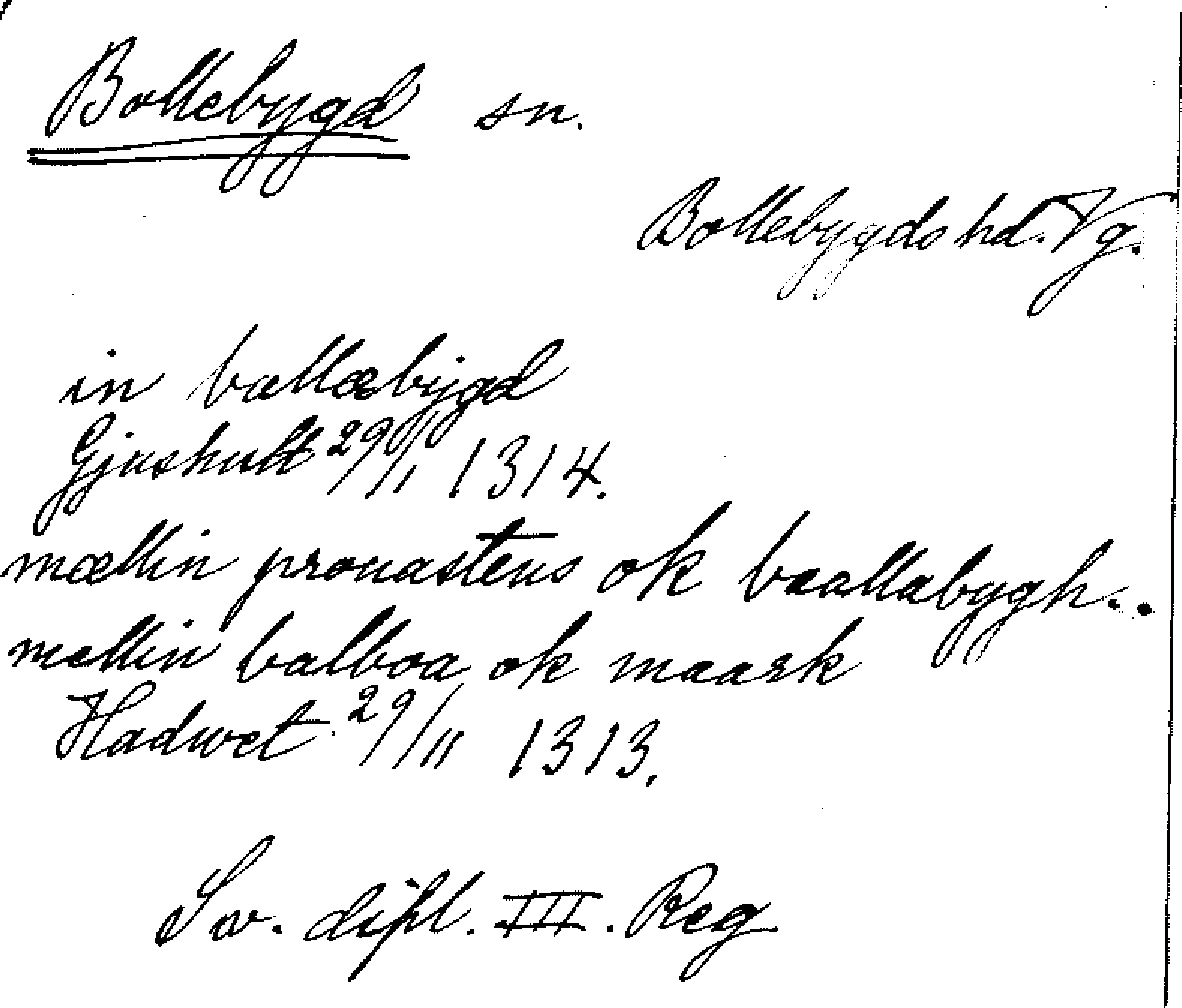 Bollebygd sn.
Bollebygds hd. Vg.
in ballæbygd
Gjushult 29/11 1314.
mællin prouastens ok baallabygh..
mællin balboa ok maark
Hadwet 29/11 1313.
Sv. dipl. III. Reg